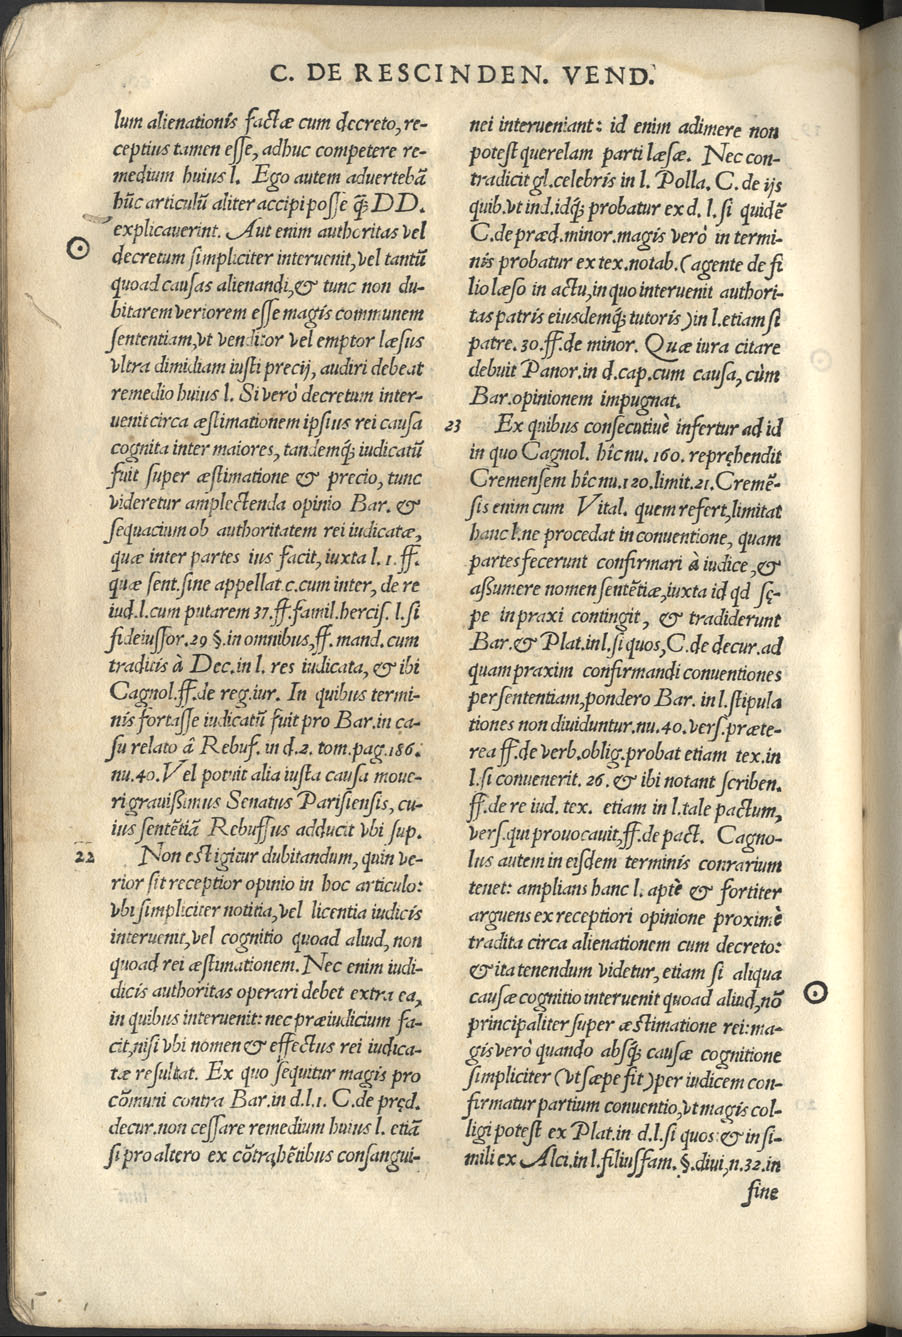 C. DE RESCINDEN. VEND.
lum alienationis factæ cum decreto, re-
ceptius tamen esse, adhuc competere re-
medium huius l. Ego autem aduertebā
hūc articulū aliter accipi posse q̄ꝫ DD.
explicauerint. Aut enim authoritas vel
decretum simpliciter interuenit, vel tantū
quoad causas alienandi, & tunc non du-
bitarem veriorem esse magis communem
sententiam, vt venditor vel emptor læsus
vltra dimidiam iusti precij, audiri debeat
remedio huius l. Si verò decretum inter-
uenit circa æstimationem ipsius rei causa
cognita inter maiores, tandemq́ꝫ iudicatū
fuit super æstimatione & precio, tunc
videretur amplectenda opinio Bar. &
sequacium ob authoritatem rei iudicatæ,
quæ inter partes ius facit, iuxta l. 1. ff.
quæ sent. sine appellat. c. cum inter, de re
iud. l. cum putarem 37. ff. famil. hercis. l. si
fideiussor. 29 §. in omnibus, ff. mand. cum
traditis à Dec. in l. res iudicata, & ibi
Cagnol. ff. de reg. iur. In quibus termi-
nis fortasse iudicatū fuit pro Bar. in ca-
su relato â Rebuf. in d. 2. tom. pag. 186.
nu. 40. Vel potuit alia iusta causa moue-
ri grauissimus Senatus Parisiensis, cu-
ius sentētiā Rebuffus adducit vbi sup.
22 Non est igitur dubitandum, quin ve-
rior sit receptior opinio in hoc articulo:
vbi simpliciter notitia, vel licentia iudicis
interuenit, vel cognitio quoad aliud, non
quoad rei æstimationem. Nec enim iudi-
dicis authoritas operari debet extra ea,
in quibus interuenit: nec præiudicium fa-
cit, nisi vbi nomen & effectus rei iudica-
tæ resultat. Ex quo sequitur magis pro
cōmuni contra Bar. in d. l. 1. C. de pręd.
decur. non cessare remedium huius l. etiā
si pro altero ex cōtrahētibus consangui-
nei interueniant: id enim adimere non
potest querelam parti læsæ. Nec con-
tradicit gl. celebris in l. Polla. C. de ijs
quib. vt ind. idq́ꝫ probatur ex d. l. si quidē
C. de præd. minor. magis verò in termi-
nis probatur ex tex. notab. (agente de fi
lio læso in actu, in quo interuenit authori-
tas patris eiusdemq́ꝫ tutoris) in l. etiam si
patre. 30. ff. de minor. Quæ iura citare
debuit Panor. in d. cap. cum causa, cùm
Bar. opinionem impugnat.
23 Ex quibus consecutiuè infertur ad id
in quo Cagnol. hîc nu. 160. repręhendit
Cremensem hîc nu. 120. limit. 21. Cremē-
sis enim cum Vital. quem refert, limitat
hanc l. ne procedat in conuentione, quam
partes fecerunt confirmari à iudice, &
assumere nomen sentētiæ, iuxta id qd sę-
pe in praxi contingit, & tradiderunt
Bar. & Plat. in l. si quos, C. de decur. ad
quam praxim confirmandi conuentiones
per sententiam, pondero Bar. in l. stipula
tiones non diuiduntur. nu. 40. vers. præte-
rea ff. de verb. oblig. probat etiam tex. in
l. si conuenerit. 26. & ibi notant scriben.
ff. de re iud. tex. etiam in l. tale pactum,
vers. qui prouocauit, ff. de pact. Cagno-
lus autem in eisdem terminis conrarium
tenet: amplians hanc l. aptè & fortiter
arguens ex receptiori opinione proximè
tradita circa alienationem cum decreto:
& ita tenendum videtur, etiam si aliqua
causæ cognitio interuenit quoad aliud, nō
principaliter super æstimatione rei: ma-
gis verò quando absq́ꝫ causæ cognitione
simpliciter (vt sæpe fit) per iudicem con-
firmatur partium conuentio, vt magis col-
ligi potest ex Plat. in d. l. si quos: & in si-
mili ex Alci. in l. filiusfam. §. diui, n. 32. in
fine